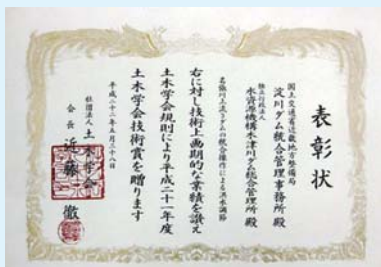 表彰状
国土交通省近畿地方整備局
淀川ダム統合管理事務所 殿
独立行政法人
水資源機構木津川ダム統合管理所 殿
名張川上流3ダムの統合操作による洪水調節
右に対し技術上画期的な業績を讃え
土木学会規則により平成二十一年度
土木学会技術賞を贈ります
平成二十二年五月二十八日
社団法人 土木学会
会長 近藤 徹